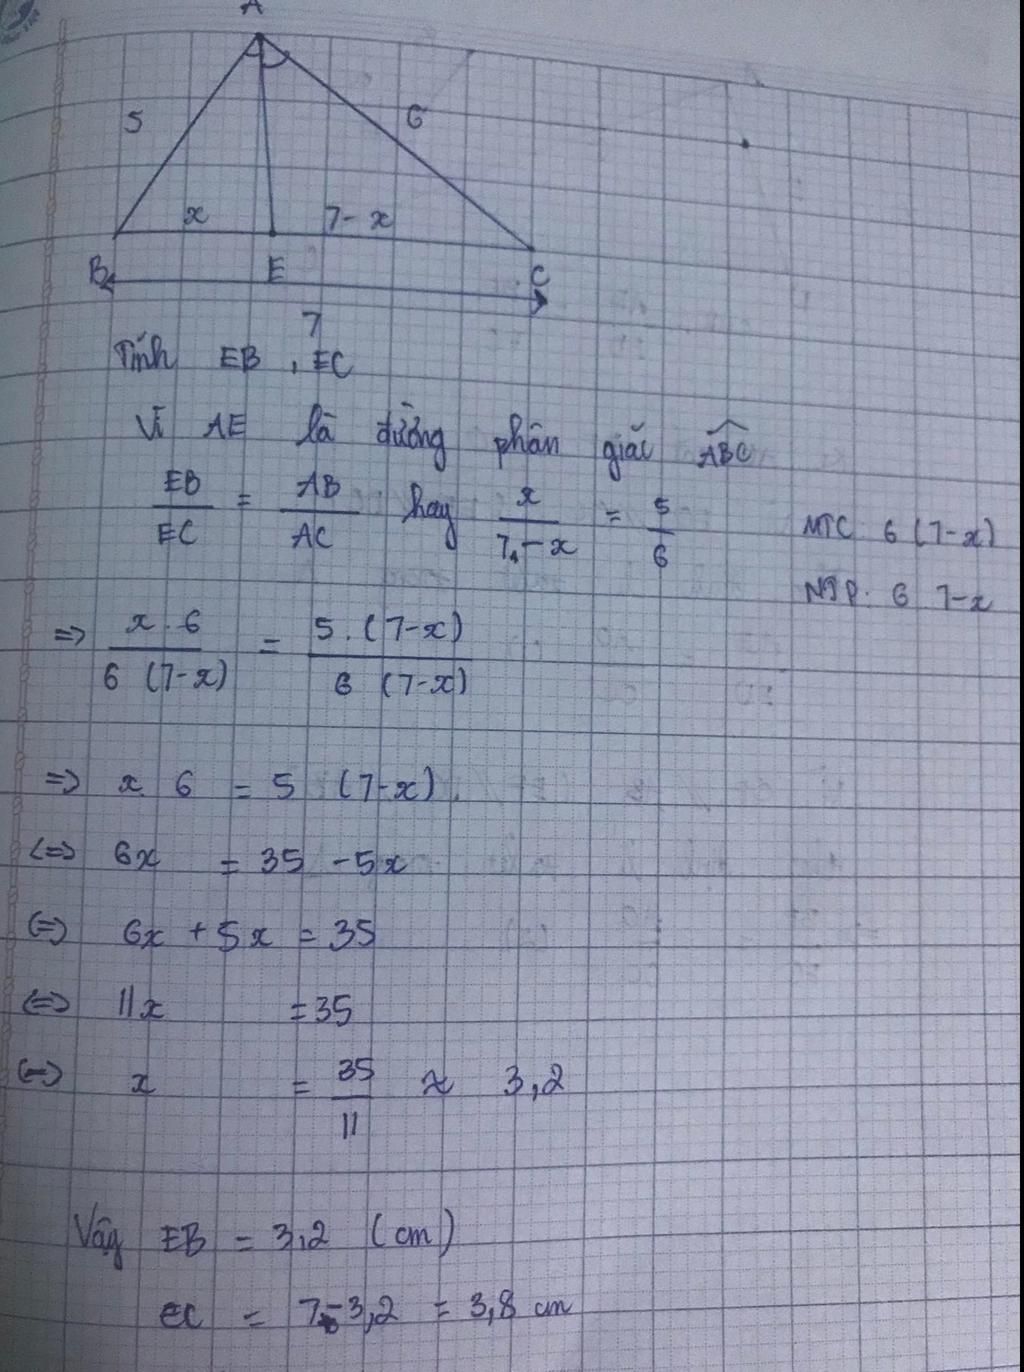 A
5 6
x 7-x
B E C
7
Tính EB, EC
Vì AE là đường phân giác ABC
EB/EC = AB/AC hay x/7-x = 5/6 MTC: 6 (7-x)
NTP: 6 7-x
=> x.6/6 (7-x) = 5.(7-x)/6 (7-x)
=> x.6 = 5 (7-x)
<=> 6x = 35 -5x
<=> 6x + 5x = 35
<=> 11x = 35
<=> x = 35/11 ≈ 3,2
Vậy EB = 3,2 (cm)
EC = 7-3,2 = 3,8 cm